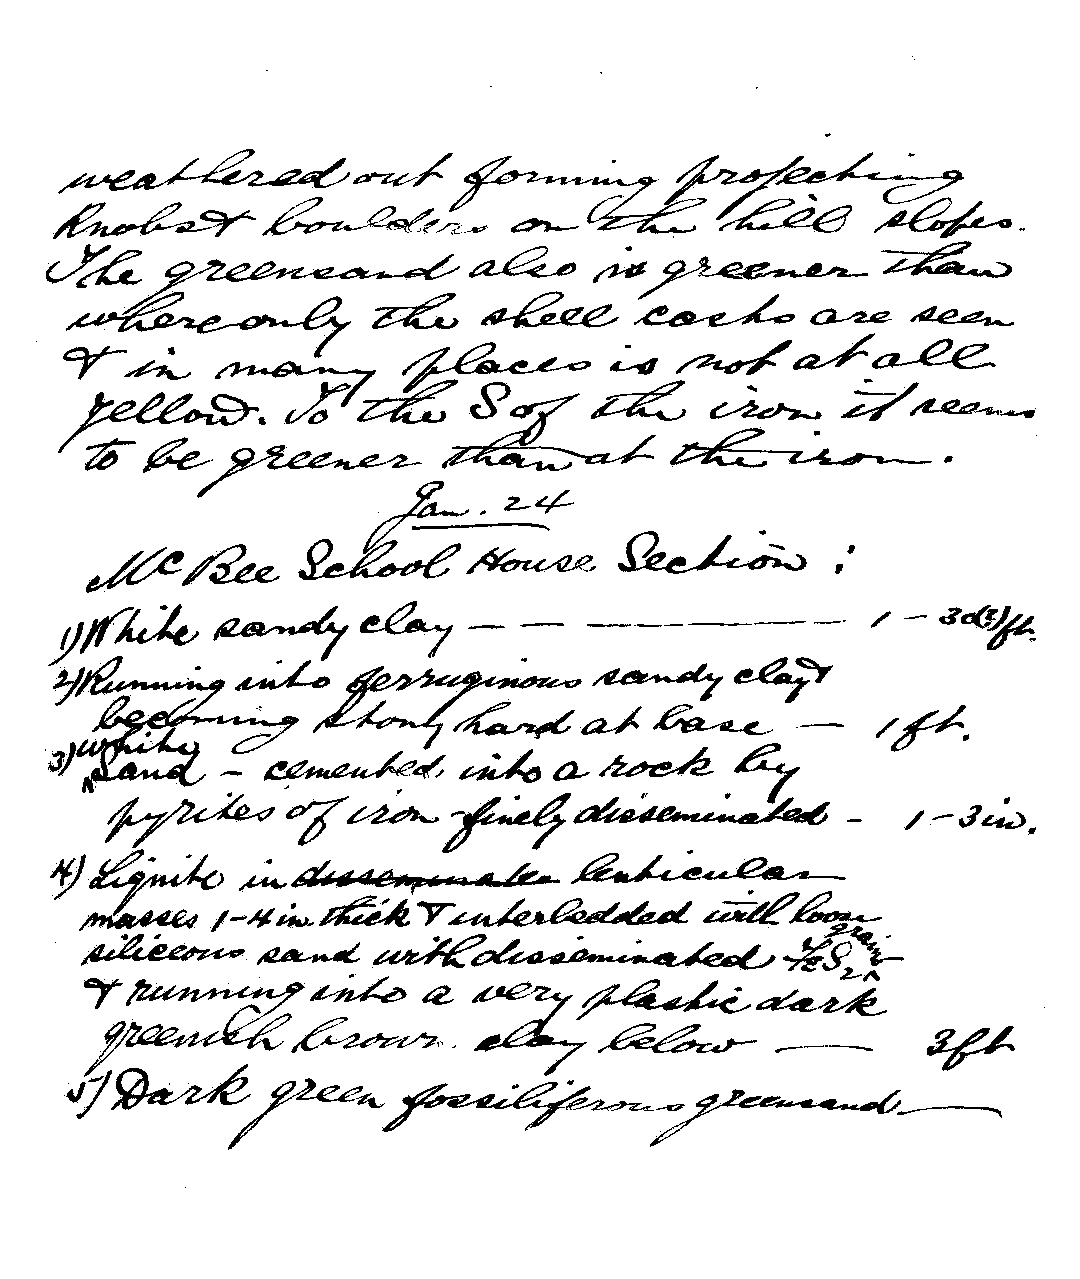 weathered out forming projecting
Knobs & boulders on the hill slopes.
The greensand also is greener than
where only the shell casts are seen
& in many places is not at all
yellow. To the S of the iron it seems
to be greener than at the iron.
Jan. 24
McBee School House Section :
1) White sandy clay — — — 1 – 3 (?) ft.
2) Running into ferruginous sandy clay &
becoming stony hard at base — 1 ft.
3) white
Sand – cemented into a rock by
pyrites of iron finely disseminated – 1 – 3 in.
4) Lignite in disseminated lenticular
masses 1–4 in. thick & interbedded with loose
grains
siliceous sand with disseminated FeS2
& running into a very plastic dark
greenish brown clay below — 3 ft
5) Dark green fossiliferous greensand —